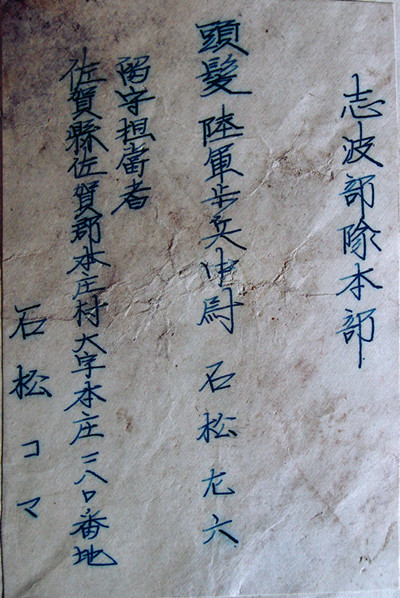 志波部隊本部
頭髪 陸軍歩兵中尉 石松尢六
留守担當者
佐賀縣佐賀郡本庄村大字本庄一八〇番地
石松コマ